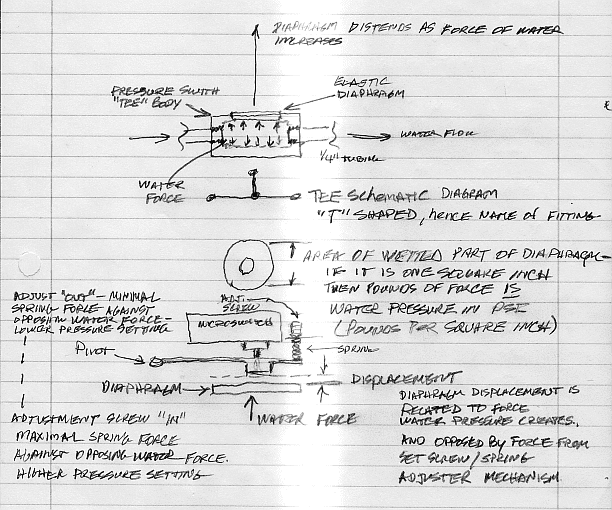 DIAPHRAGM DISTENDS AS FORCE OF WATER
INCREASES
PRESSURE SWITH
"TEE" BODY
ELASTIC
DIAPHRAGM
WATER FLOW
1/4" TUBING
WATER
FORCE
TEE SCHEMATIC DIAGRAM
"T" SHAPED, HENCE NAME OF FITTING
AREA OF WETTED PART OF DIAPHRAGM-
IF IT IS ONE SQUARE INCH
THEN POUNDS OF FORCE IS
WATER PRESSURE IN PSI
(POUNDS PER SQUARE INCH)
ADJUST "OUT" - MINIMAL
SPRING FORCE AGAINST
OPPOSITN WATER FORCE-
LOWER PRESSURE SETTING
ADJ.
SCREW
MICROSWITCH
SPRING
PIVOT
DIAPHRAGM
DISPLACEMENT
WATER FORCE
DIAPHRAGM DISPLACEMENT IS
RELATED TO FORCE
WATER PRESSURE CREATES.
AND OPPOSED BY FORCE FROM
SET SCREW/SPRING
ADJUSTER MECHANISM
ADJUSTMENT SCREW "IN"
MAXIMAL SPRING FORCE
AGAINST OPPOSING WATER FORCE.
HIGHER PRESSURE SETTING